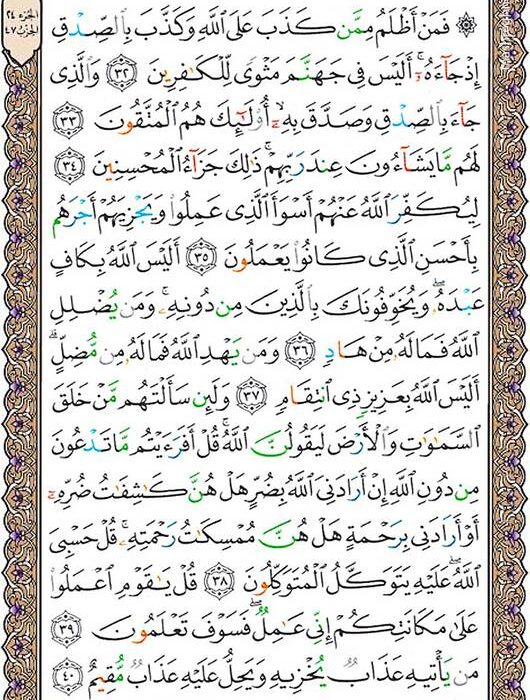 الجزء ٢٤
الحزب ٤٧
۞ فَمَنْ أَظْلَمُ مِمَّن كَذَبَ عَلَى ٱللَّهِ وَكَذَّبَ بِٱلصِّدْقِ
إِذْ جَآءَهُۥٓ ۚ أَلَيْسَ فِى جَهَنَّمَ مَثْوًى لِّلْكَٰفِرِينَ ٣٢ وَٱلَّذِى
جَآءَ بِٱلصِّدْقِ وَصَدَّقَ بِهِۦٓ ۙ أُو۟لَٰٓئِكَ هُمُ ٱلْمُتَّقُونَ ٣٣
لَهُم مَّا يَشَآءُونَ عِندَ رَبِّهِمْ ۚ ذَٰلِكَ جَزَآءُ ٱلْمُحْسِنِينَ ٣٤
لِيُكَفِّرَ ٱللَّهُ عَنْهُمْ أَسْوَأَ ٱلَّذِى عَمِلُوا۟ وَيَجْزِيَهُمْ أَجْرَهُم
بِأَحْسَنِ ٱلَّذِى كَانُوا۟ يَعْمَلُونَ ٣٥ أَلَيْسَ ٱللَّهُ بِكَافٍ
عَبْدَهُۥ ۖ وَيُخَوِّفُونَكَ بِٱلَّذِينَ مِن دُونِهِۦ ۚ وَمَن يُضْلِلِ
ٱللَّهُ فَمَا لَهُۥ مِنْ هَادٍ ٣٦ وَمَن يَهْدِ ٱللَّهُ فَمَا لَهُۥ مِن مُّضِلٍّ ۗ
أَلَيْسَ ٱللَّهُ بِعَزِيزٍ ذِى ٱنتِقَامٍ ٣٧ وَلَئِن سَأَلْتَهُم مَّنْ خَلَقَ
ٱلسَّمَٰوَٰتِ وَٱلْأَرْضَ لَيَقُولُنَّ ٱللَّهُ ۚ قُلْ أَفَرَءَيْتُم مَّا تَدْعُونَ
مِن دُونِ ٱللَّهِ إِنْ أَرَادَنِىَ ٱللَّهُ بِضُرٍّ هَلْ هُنَّ كَٰشِفَٰتُ ضُرِّهِۦٓ
أَوْ أَرَادَنِى بِرَحْمَةٍ هَلْ هُنَّ مُمْسِكَٰتُ رَحْمَتِهِۦ ۚ قُلْ حَسْبِىَ
ٱللَّهُ ۖ عَلَيْهِ يَتَوَكَّلُ ٱلْمُتَوَكِّلُونَ ٣٨ قُلْ يَٰقَوْمِ ٱعْمَلُوا۟
عَلَىٰ مَكَانَتِكُمْ إِنِّى عَٰمِلٌ ۖ فَسَوْفَ تَعْلَمُونَ ٣٩
مَن يَأْتِيهِ عَذَابٌ يُخْزِيهِ وَيَحِلُّ عَلَيْهِ عَذَابٌ مُّقِيمٌ ٤٠